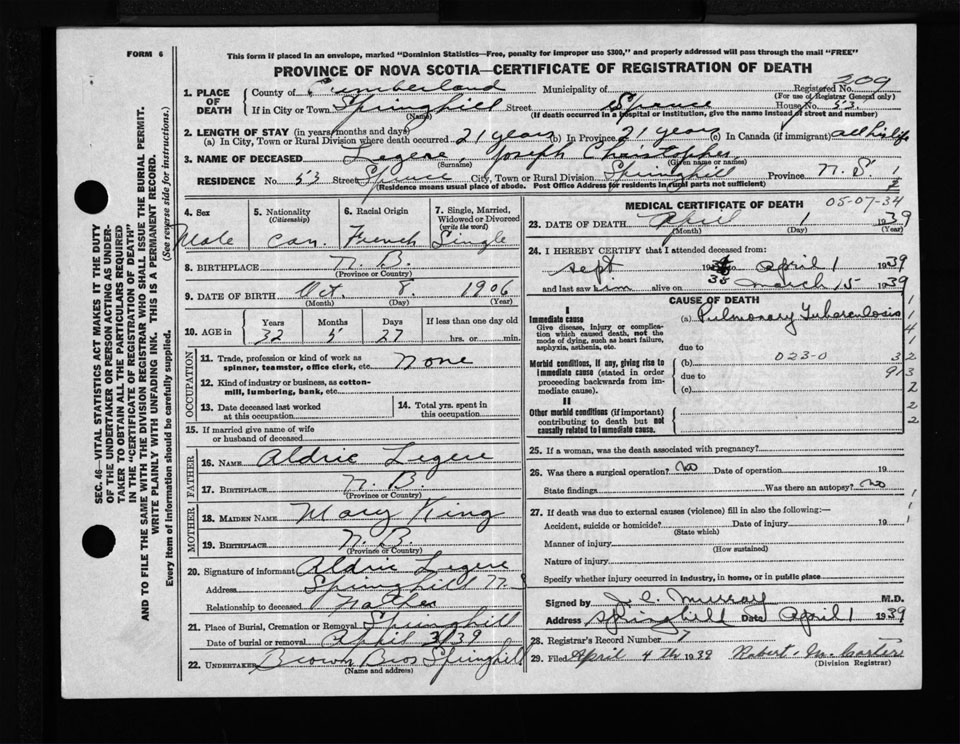 FORM 6
This form if placed in an envelope, marked "Dominion Statistics—Free, penalty for improper use $300," and properly addressed will pass through the mail "FREE"
PROVINCE OF NOVA SCOTIA—CERTIFICATE OF REGISTRATION OF DEATH
209
1. PLACE OF DEATH
County of Cumberland Municipality of Registered No.
(For use of Registrar General only)
If in City or Town Springhill Street Spruce House No. 53.
(Name) (If death occurred in a hospital or institution, give the name instead of street and number)
2. LENGTH OF STAY (in years, months and days)
(a) In City, Town or Rural Division where death occurred 21 years (b) In Province 21 years (c) In Canada (if immigrant) all his life
3. NAME OF DECEASED Legere Joseph Christopher
(Surname) (Given name or names)
RESIDENCE No. 53 Street Spruce City, Town or Rural Division Springhill Province N. S.
(Residence means usual place of abode. Post Office Address for residents in rural parts not sufficient)
4. Sex Male
5. Nationality (Citizenship) Can.
6. Racial Origin French
7. Single, Married, Widowed or Divorced (write the word) Single
8. BIRTHPLACE N. B.
(Province or Country)
9. DATE OF BIRTH Oct. 8, 1906
(Month) (Day) (Year)
10. AGE in Years Months Days If less than one day old
32 5 27 hrs. or min.
OCCUPATION
11. Trade, profession or kind of work as spinner, teamster, office clerk, etc. None
12. Kind of industry or business, as cotton-mill, lumbering, bank, etc
13. Date deceased last worked at this occupation
14. Total yrs. spent in this occupation
15. If married give name of wife or husband of deceased
FATHER
16. NAME Aldric Legere
17. BIRTHPLACE N. B.
(Province or Country)
MOTHER
18. MAIDEN NAME Mary King
19. BIRTHPLACE N. B.
(Province or Country)
20. Signature of informant Aldric Legere
Address Springhill N. S
Relationship to deceased Father
21. Place of Burial, Cremation or Removal Springhill
Date of burial or removal April 3/39
22. UNDERTAKER Brown Bros Springhill
(Name and address)
MEDICAL CERTIFICATE OF DEATH 05-07-34
23. DATE OF DEATH April 1 1939
(Month) (Day) (Year)
24. I HEREBY CERTIFY that I attended deceased from:
Sept 1938 to April 1 1939
and last saw him alive on March 15 1939
CAUSE OF DEATH
I
Immediate cause
Give disease, injury or complication which caused death, not the mode of dying, such as heart failure, asphyxia, asthenia, etc.
(a) Pulmonary Tuberculosis
due to
Morbid conditions, if any, giving rise to immediate cause (stated in order proceeding backwards from immediate cause).
(b) 023-0
due to
(c)
II
Other morbid conditions (if important) contributing to death but not causally related to immediate cause.
1
4
1
32
913
2
2
2
25. If a woman, was the death associated with pregnancy?
26. Was there a surgical operation? No Date of operation 19
State findings Was there an autopsy? No
27. If death was due to external causes (violence) fill in also the following:—
Accident, suicide or homicide? Date of injury 19
(State which)
Manner of injury
(How sustained)
Nature of injury
Specify whether injury occurred in industry, in home, or in public place
Signed by J. C. Murray M.D.
Address Springhill Date April 1 1939
28. Registrar's Record Number 37
29. Filed April 4 Th 1939 Robert
(Division Registrar)
SEC. 46—VITAL STATISTICS ACT MAKES IT THE DUTY
OF THE UNDERTAKER OR PERSON ACTING AS UNDER-
TAKER TO OBTAIN ALL THE PARTICULARS REQUIRED
IN THE "CERTIFICATE OF REGISTRATION OF DEATH"
AND TO FILE THE SAME WITH THE DIVISION REGISTRAR WHO SHALL ISSUE THE BURIAL PERMIT.
WRITE PLAINLY WITH UNFADING INK. THIS IS A PERMANENT RECORD.
Every item of information should be carefully supplied. (See reverse side for instructions.)